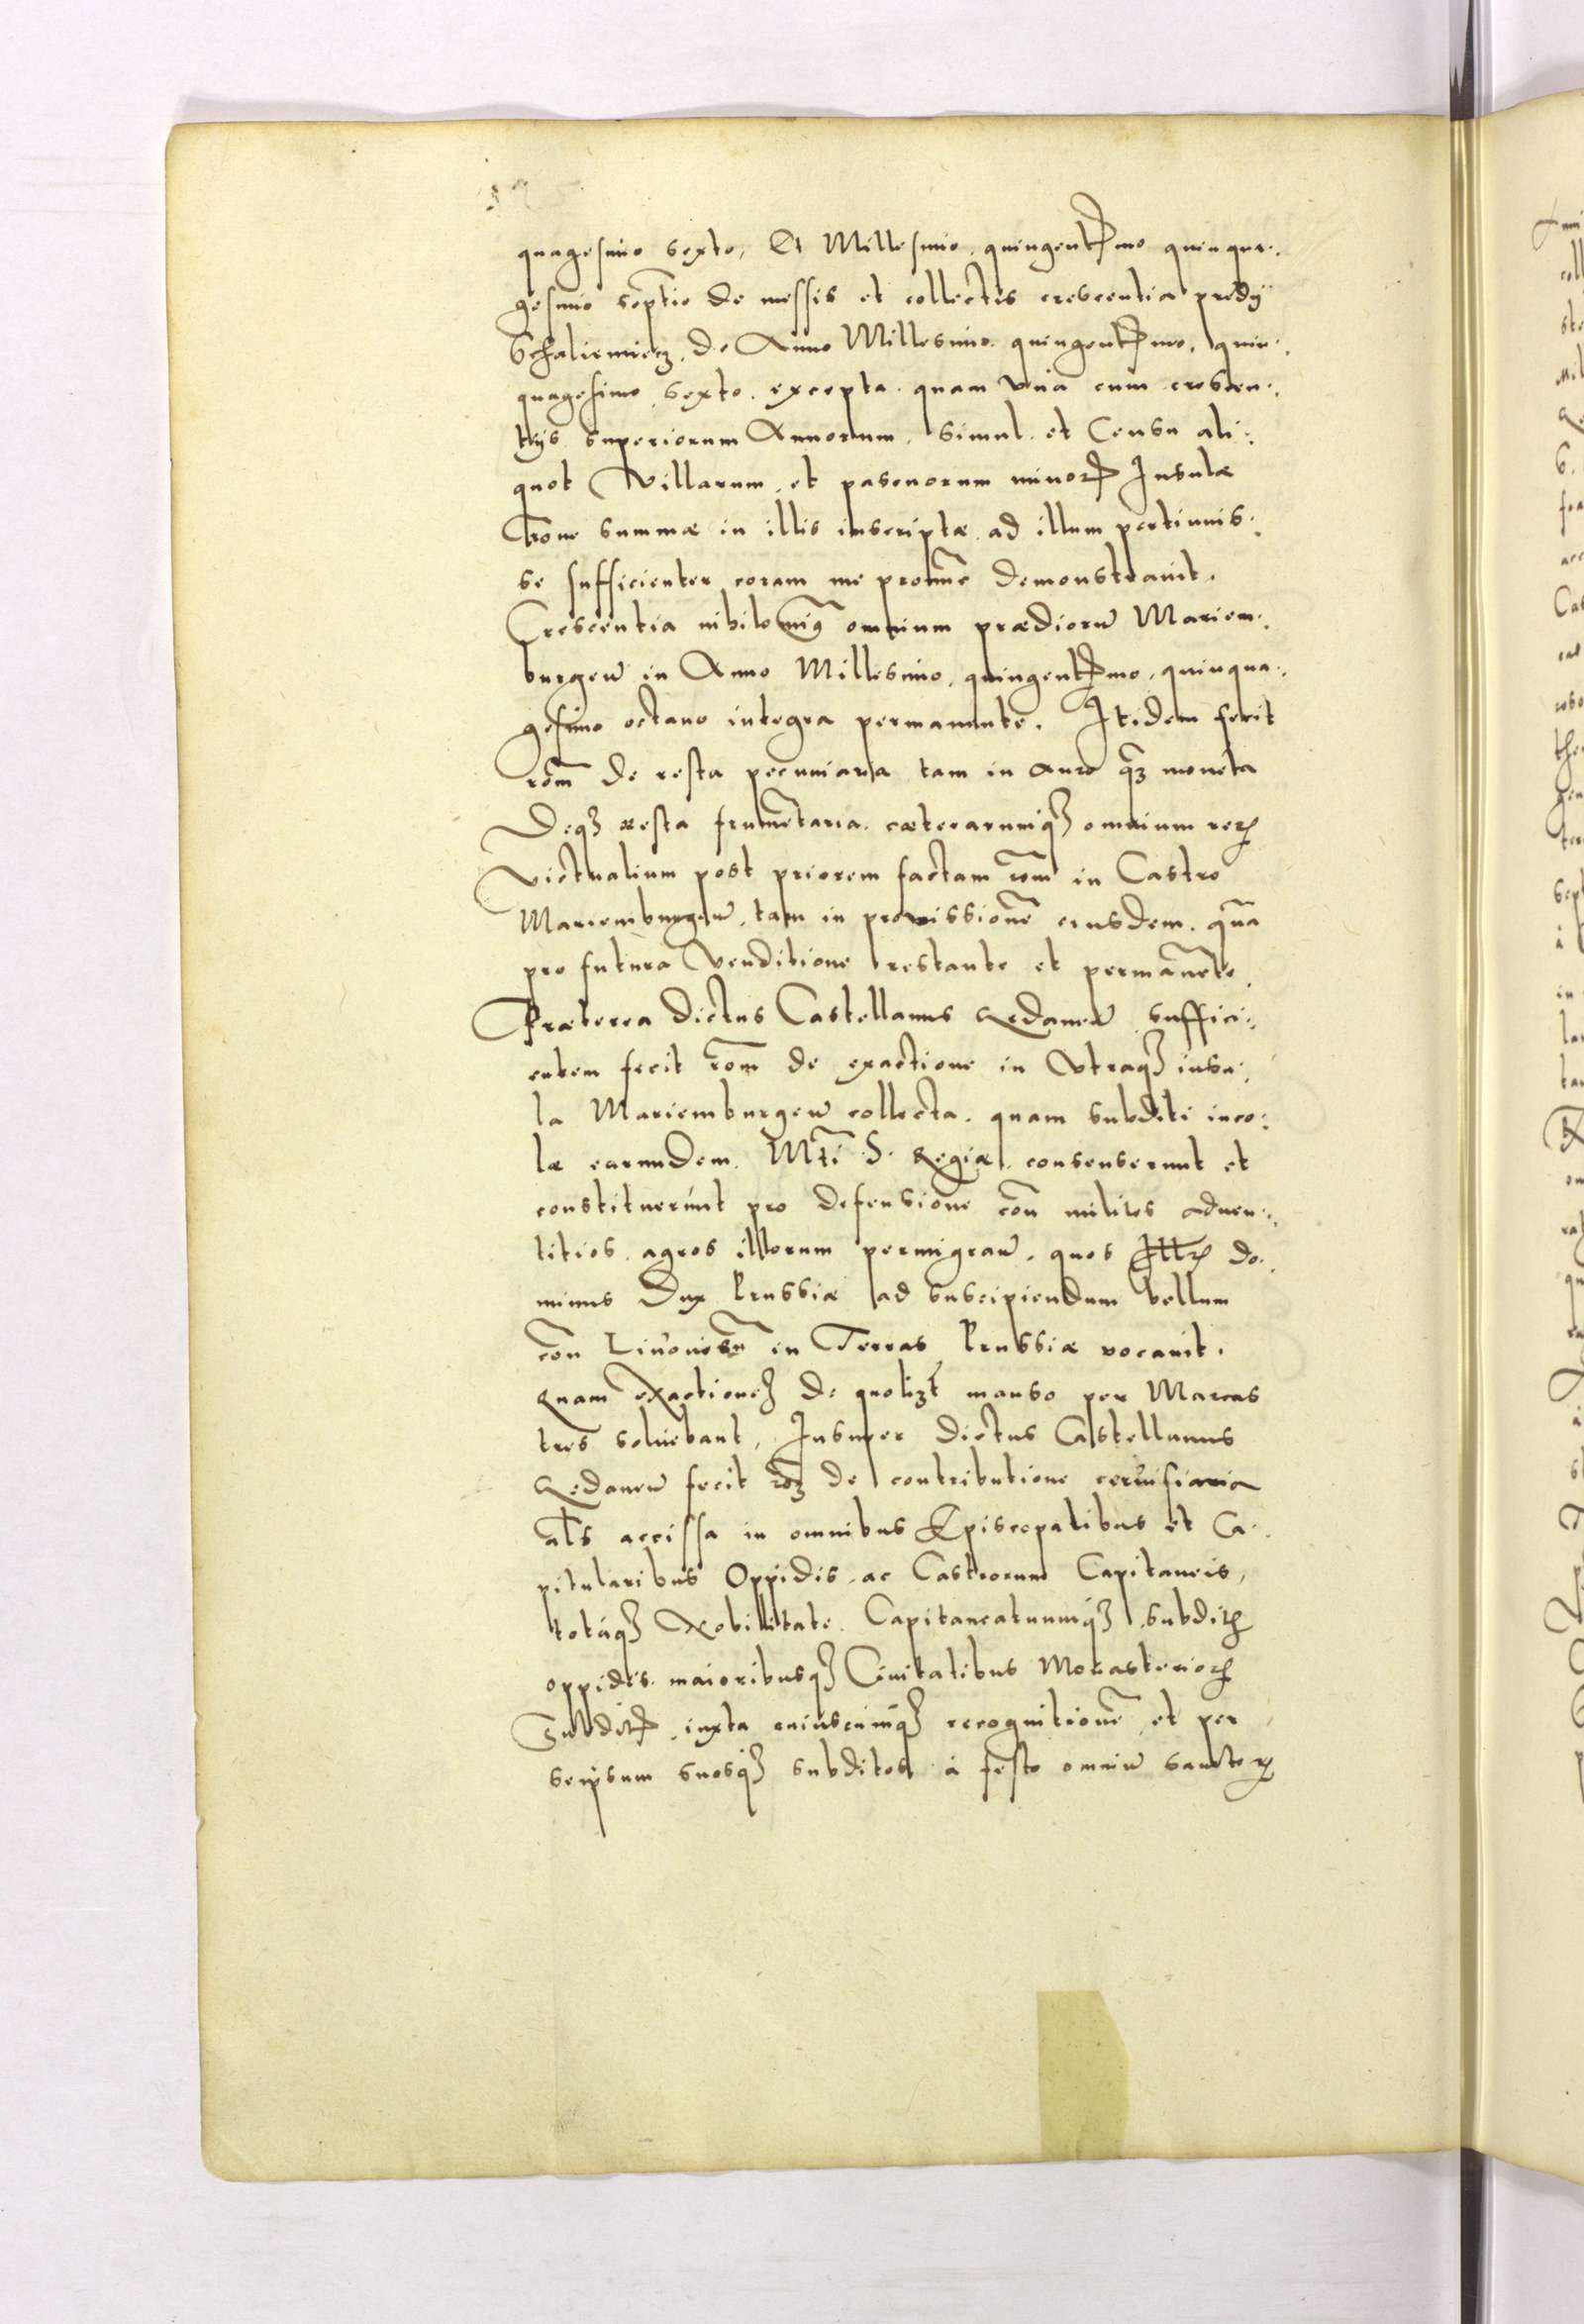 quagesimo sexto, Et Millesimo, quingentesimo quinqua:
gesimo septio de messis et collectis crescentia predij
Schaliemiecz, de Anno Millesimo quingentesimo, quin:
quagesimo sexto. excepta quam vna cum crescen:
tijs superiorum Annorum, simul et Censu ali:
quot Villarum, et pasenorum minorum Insulæ
rone summæ in illis inscriptæ ad illum pertinuis:
se sufficienter coram me demonstrauit.
Crescentia nihilominus omnium prædiorum Mariem:
burgen in Anno Millesimo, quingentesimo, quinqua:
gesimo octauo integra permanente. Itidem fecit
rom de resta pecuniaria tam in auro qz moneta
Deqz resta frumetaria. cæterarumqz omnium rerum
victualium post priorem factam rom in Castro
Mariemburgen, tam in prouissione eiusdem. qua
pro futura venditione restante et permanete.
Præterea dictus Castellanus Gedanen suffici:
entem fecit rom de exactione in vtraqz insu:
la Mariemburgen collecta. quam subditi inco:
læ earundem. Mti S. Regiæ consenserunt et
constituerunt pro defensione con milites aduen:
titios agros illorum permigran. quos Illr do:
minus Dux Prussiæ ad suscipiendum bellum
con Liuonien in Terras Prussiæ vocauit.
Quam exactionez de quolizt manso per Marcas
tres soluebant, Insuper dictus Castellanus
Gedanen fecit roz de contributione ceruisiaria
als accissa in omnibus Episcopalibus et Ca:
pitularibus Oppidis ac Castrorum Capitaneis,
totaqz Nobilitate. Capitaneatuumqz subditorum
oppidis. maioribusqz Ciuitatibus Monasteriorum
Subditorum, iuxta cuiuscumqz recognitione et per
seipsum suosqz subditos à festo omniu sanctorum